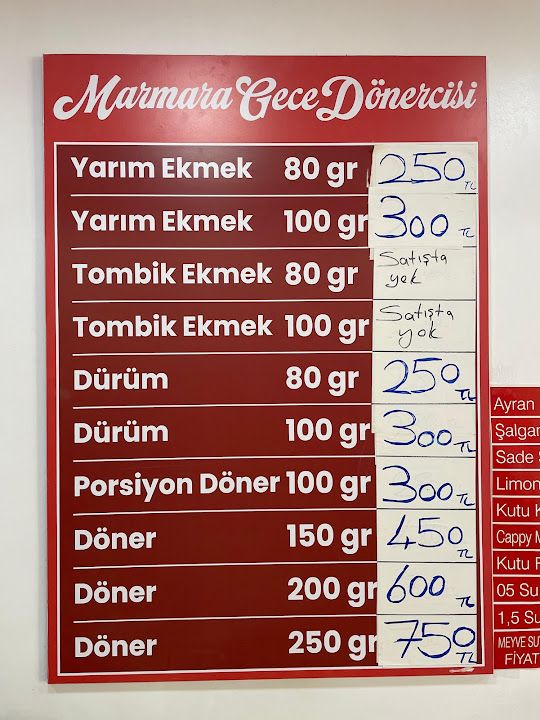 Marmara Gece Dönercisi
Yarım Ekmek 80 gr 250 TL
Yarım Ekmek 100 gr 300 TL
Tombik Ekmek 80 gr Satışta yok
Tombik Ekmek 100 gr Satışta yok
Dürüm 80 gr 250 TL
Dürüm 100 gr 300 TL
Porsiyon Döner 100 gr 300 TL
Döner 150 gr 450 TL
Döner 200 gr 600 TL
Döner 250 gr 750 TL
Ayran
Şalgam
Sade
Limon
Kutu
Cappy
Kutu
05 Su
1,5 Su
MEYVE SU
FİYAT